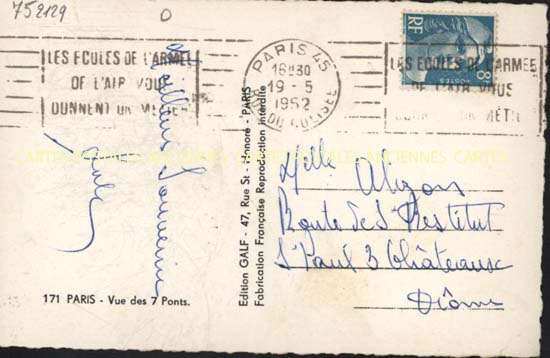 752129
O
LES ECOLES DE L'ARMEE
DE L'AIR VOUS
DONNENT UN METIER
PARIS 45
16H30
19-5
1952
R. DU COLISEE
LES ECOLES DE L'ARMEE
DE L'AIR VOUS
UN METIE
RF
POSTES
8F
Meilleur Souvenir
Edition GALF - 47, Rue St - Honoré - PARIS
Fabrication Française Reproduction Interdite
Melle Alizon
Route de St Restitut
St Paul 3 Châteaux
Drôme
171 PARIS - Vue des 7 Ponts.
CARTES POSTALES ANCIENNES CARTES